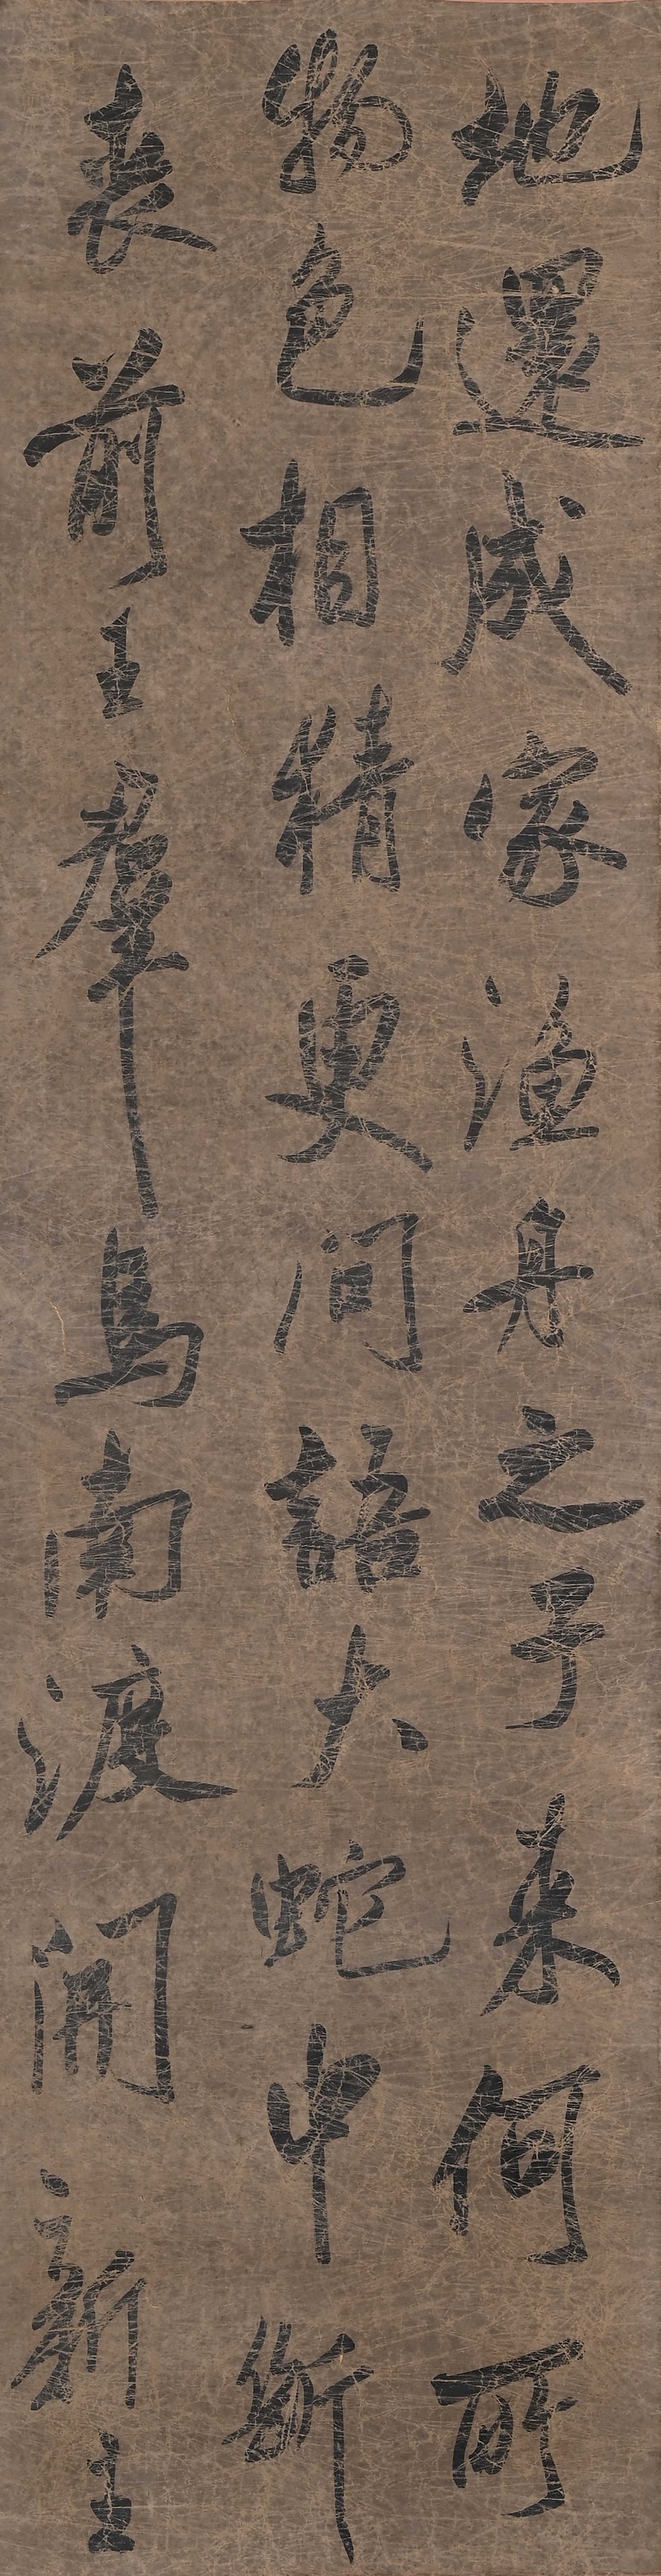 地還成家漁舟之子来何所
物色相猜更问語大蛇中斷
喪前王群馬南渡開新主